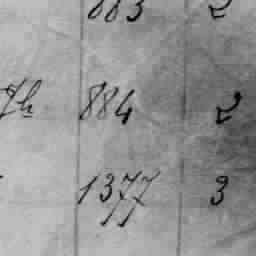 883 2
884 2
1377 3